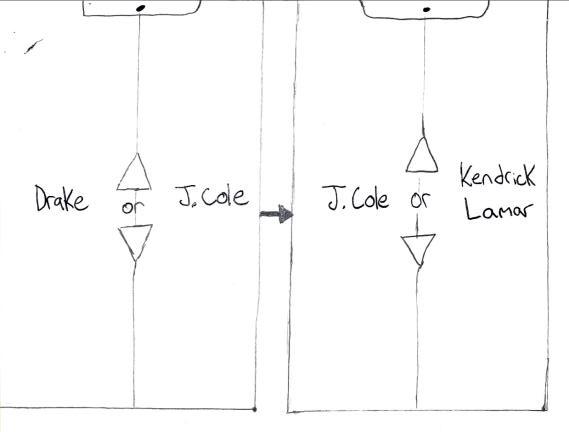 Drake or J. Cole
J. Cole or Kendrick
Lamar